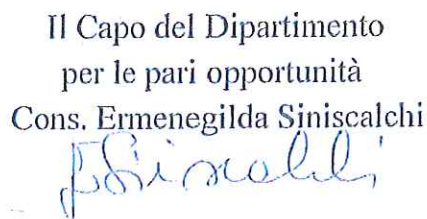 Il Capo del Dipartimento
per le pari opportunità
Cons. Ermenegilda Siniscalchi